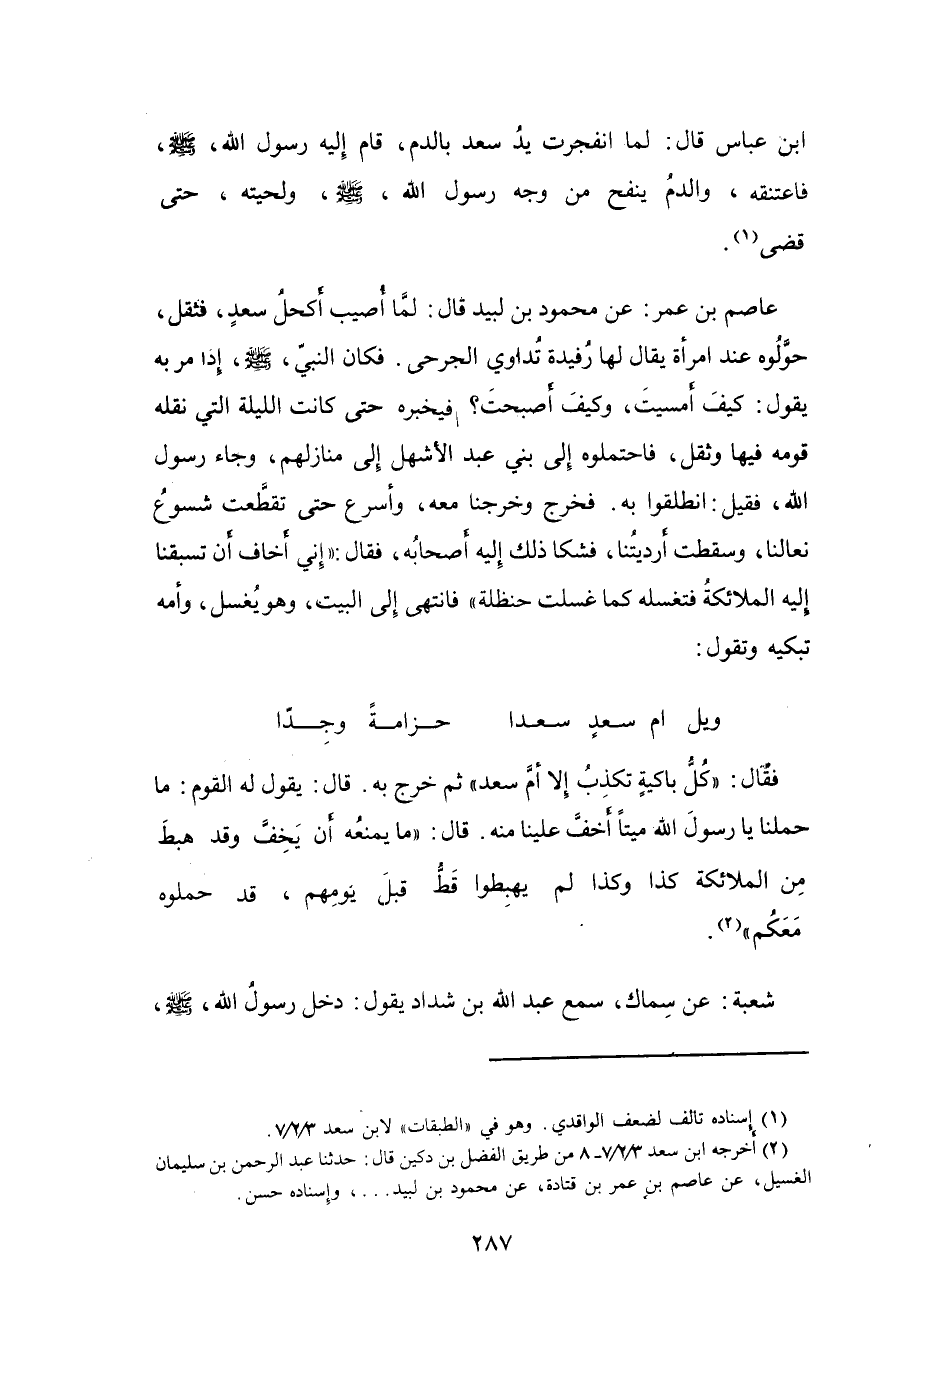 ابن عباس قال: لما انفجرت يدُ سعد بالدم، قام إليه رسول الله، ﷺ،
فاعتنقه ، والدمُ ينفح من وجه رسول الله ، ﷺ ، ولحيته ، حتى
قضى(١) .
عاصم بن عمر: عن محمود بن لبيد قال: لمَّا أُصيب أَكحلُ سعدٍ، فثقل،
حوَّلُوه عند امرأة يقال لها رُفيدة تُداوي الجرحى. فكان النبيّ، ﷺ، إذا مر به
يقول: كيفَ أَمسيتَ، وكيفَ أَصبحتَ؟ فيخبره حتى كانت الليلة التي نقله
قومه فيها وثقل، فاحتملوه إلى بني عبد الأشهل إلى منازلهم، وجاء رسول
الله، فقيل: انطلقوا به. فخرج وخرجنا معه، وأسرع حتى تقطَّعت شسوعُ
نعالنا، وسقطت أَرديتُنا، فشكا ذلك إليه أَصحابُه، فقال: «إني أَخاف أَن تسبقنا
إليه الملائكةُ فتغسله كما غسلت حنظلة» فانتهى إلى البيت، وهو يُغسل، وأمه
تبكيه وتقول:
ويل ام سعدٍ سعدا حزامةً وجِدّا
فقَال: «كُلُّ باكيةٍ تكذِبُ إلا أمَّ سعد» ثم خرج به. قال: يقول له القوم: ما
حملنا يا رسولَ الله ميتاً أَخفَّ علينا منه. قال: «ما يمنعُه أَن يَخِفَّ وقد هبطَ
مِن الملائكة كذا وكذا لم يهبِطوا قَطُّ قبلَ يَومِهم ، قد حملوه
مَعَكُم»(٢) .
شعبة: عن سِماك، سمع عبد الله بن شداد يقول: دخل رسولُ الله، ﷺ،
(١) إسناده تالف لضعف الواقدي. وهو في «الطبقات» لابن سعد ٧/٢/٣.
(٢) أَخرجه ابن سعد ٧/٢/٣ـ ٨ من طريق الفضل بن دكين قال: حدثنا عبد الرحمن بن سليمان
الغسيل، عن عاصم بن عمر بن قتادة، عن محمود بن لبيد...، وإسناده حسن.
٢٨٧